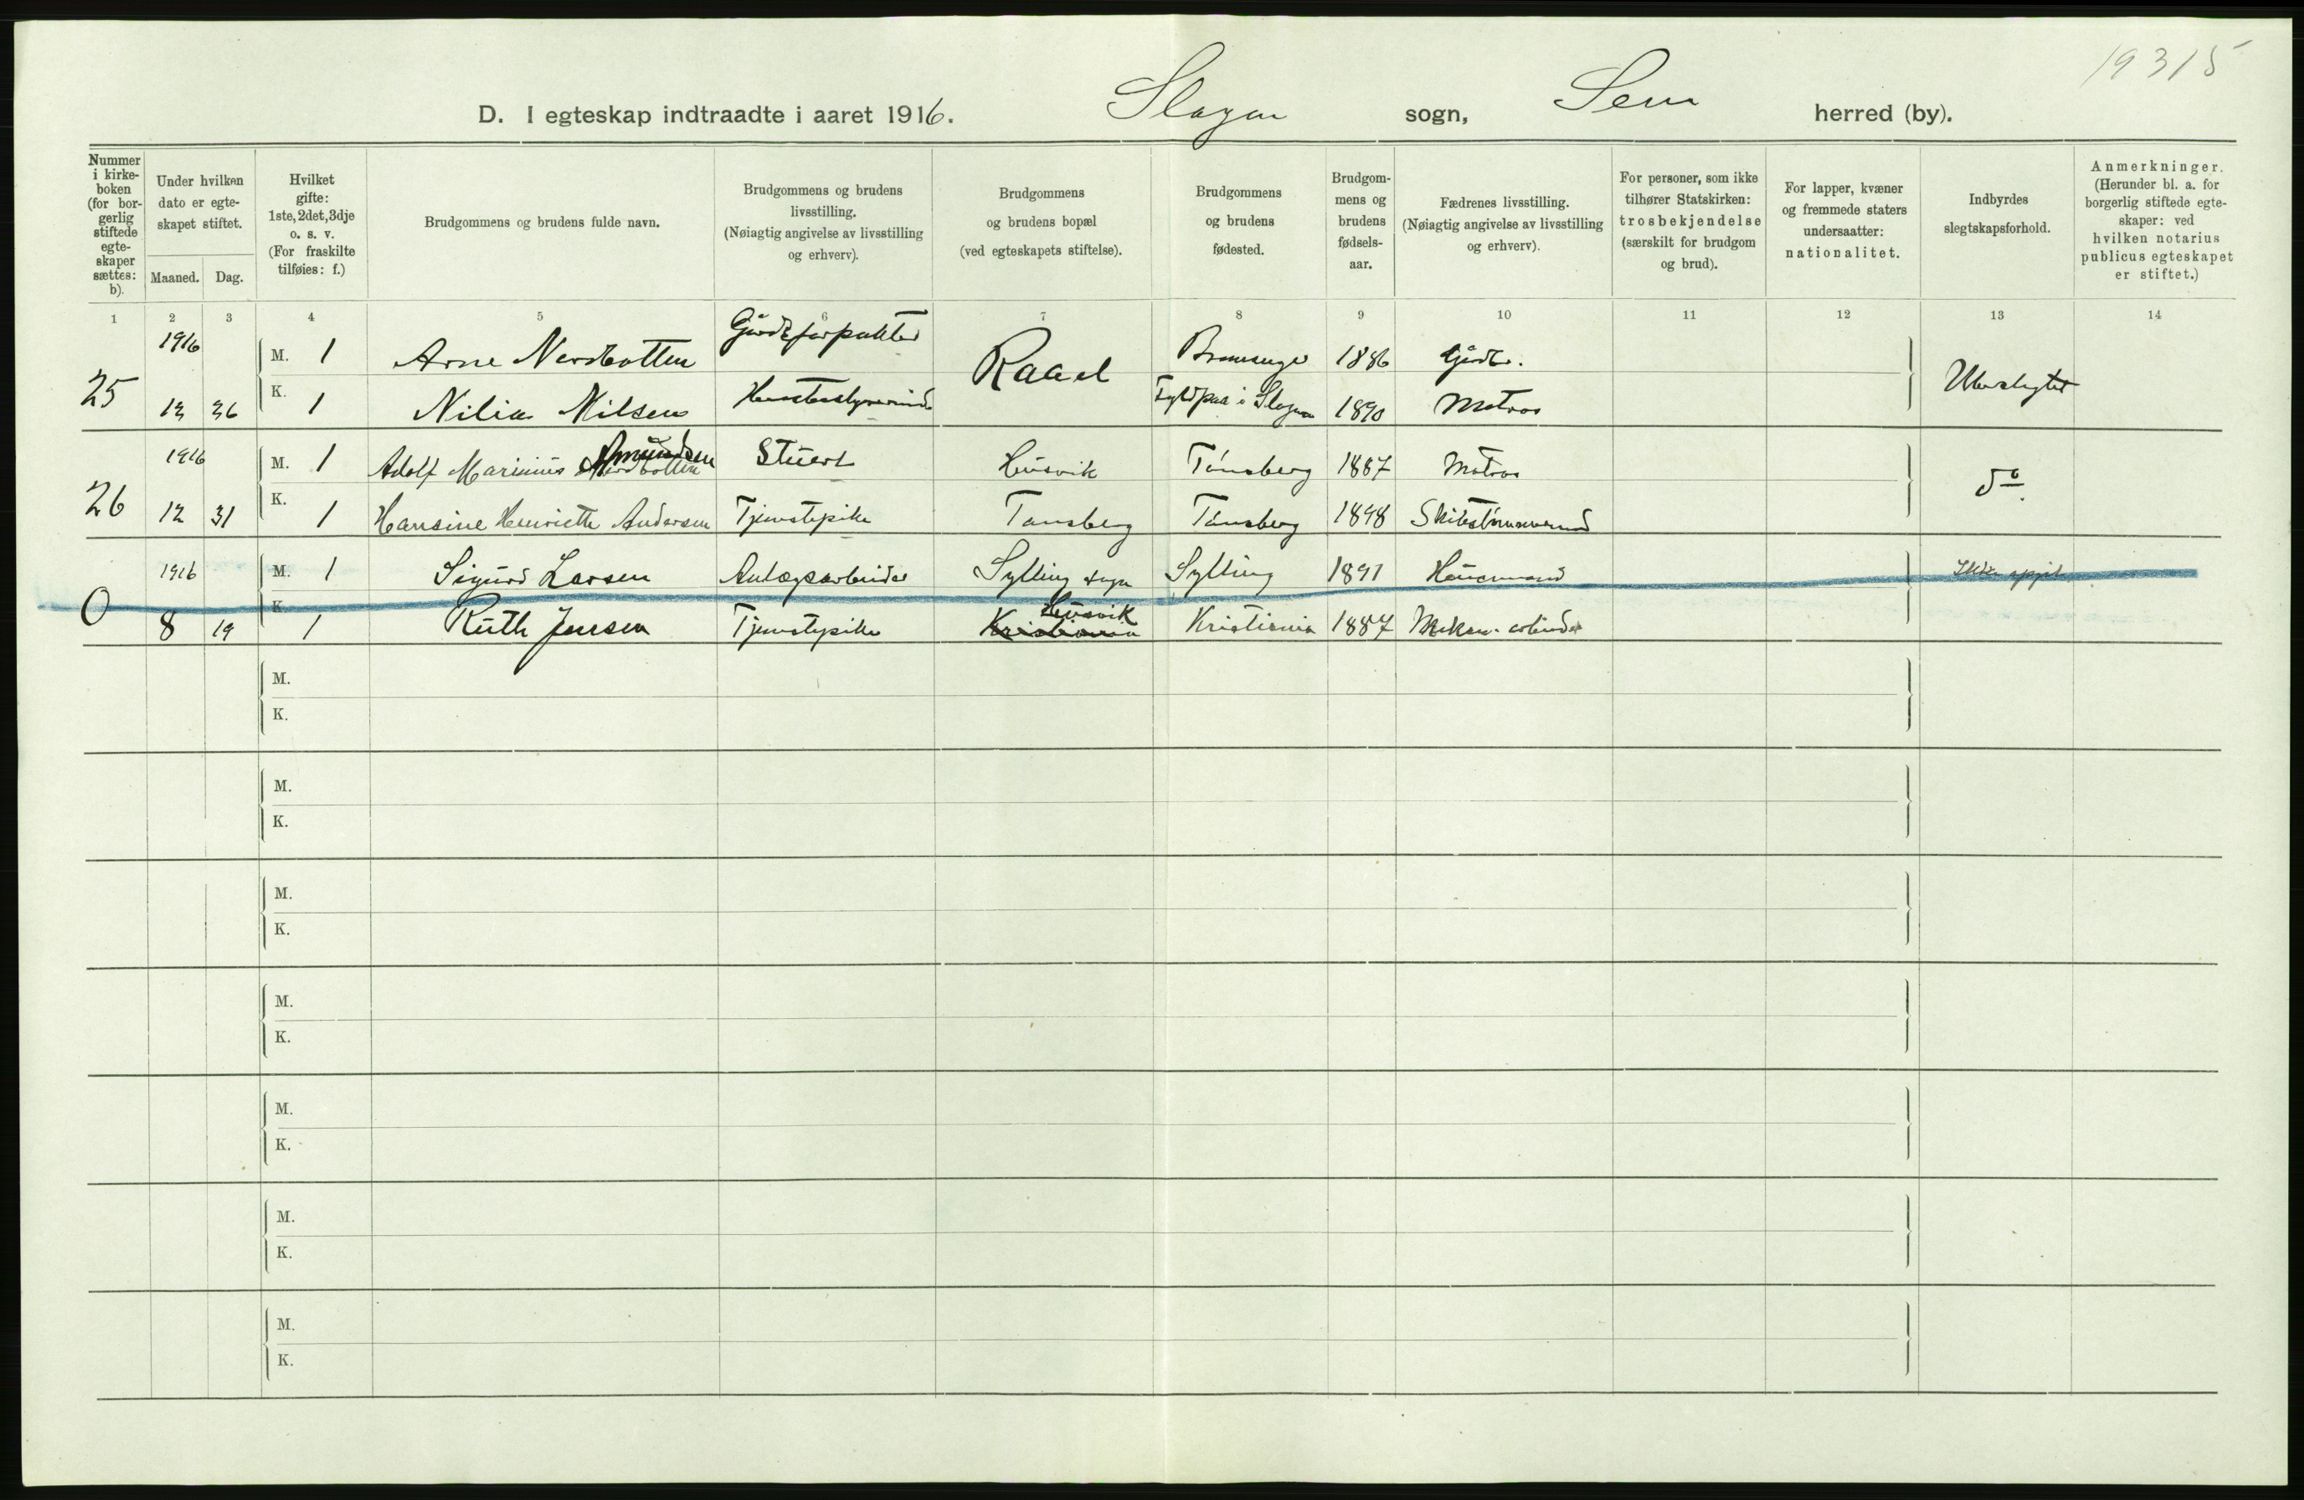 19315
D. I egteskap indtraadte i aaret 1916. Slagen sogn, Sem herred (by).
Nummer i kirke-boken (for bor-gerlig stiftede egte-skaper sættes: b).
Under hvilken dato er egte-skapet stiftet.
Maaned. Dag.
Hvilket gifte: 1ste, 2det, 3dje o. s. v. (For fraskilte tilføies: f.)
Brudgommens og brudens fulde navn.
Brudgommens og brudens livsstilling. (Nøiagtig angivelse av livsstilling og erhverv).
Brudgommens og brudens bopæl (ved egteskapets stiftelse).
Brudgommens og brudens fødested.
Brudgom-mens og brudens fødsels-aar.
Fædrenes livsstilling. (Nøiagtig angivelse av livsstilling og erhverv).
For personer, som ikke tilhører Statskirken: trosbekjendelse (særskilt for brudgom og brud).
For lapper, kvæner og fremmede staters undersaatter: nationalitet.
Indbyrdes slegtskapsforhold.
Anmerkninger. (Herunder bl. a. for borgerlig stiftede egte-skaper: ved hvilken notarius publicus egteskapet er stiftet.)
1 2 3 4 5 6 7 8 9 10 11 12 13 14
1916 M. 1 Arne Nersbotten Gårdsforpakter Raael 1886 Gårdbr.
25 12 26 K. 1 Nilia Nilsen i Slagen 1890 Matros Ubeslegtet
1916 M. 1 Adolf Marinius Nersbotten Amundsen Stuert Husvik Tønsberg 1887 Matros
26 12 31 K. 1 Hansine Henriette Andersen Tjenestepike Tønsberg Tønsberg 1898 Skibstømmermand do
1916 M. 1 Sigurd Larsen Anlægsarbeider Sylling sogn Sylling 1891 Husmand Ikke opgit
0 8 19 K. 1 Ruth Jensen Tjenestepike Kristiania Husvik Kristiania 1887 Mekan. arbeider
M.
K.
M.
K.
M.
K.
M.
K.
M.
K.
M.
K.
M.
K.